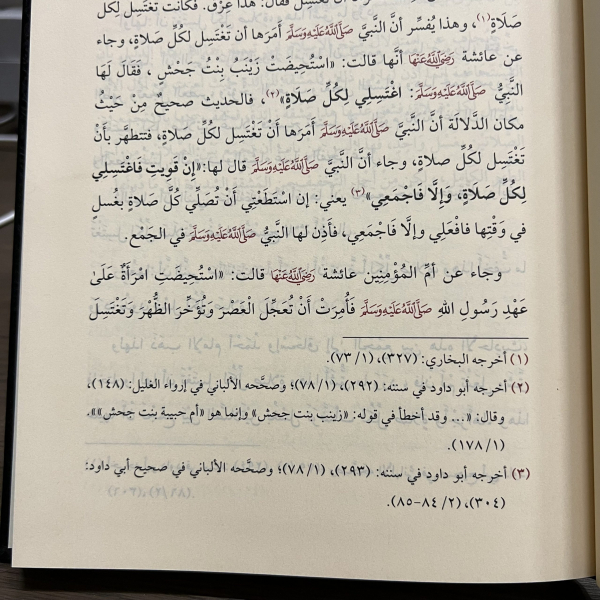 أن تغتسل فقال: هذا عِرْق. فكانت تغتسل لكل
صَلَاةٍ»(١)، وهذا يُفسِّر أنَّ النَّبيَّ ﷺ أمَرَها أن تَغْتَسِل لكُلِّ صَلَاةٍ، وجاء
عن عائشة رَضِيَ اللَّهُ عَنْهَا أنَّها قالت: «اسْتُحِيضَتْ زَيْنَبُ بِنْتُ جَحْشٍ، فَقَالَ لَهَا
النَّبِيُّ ﷺ: اغْتَسِلِي لِكُلِّ صَلَاةٍ»(٢)، فالحديث صحيحٌ مِنْ حَيْثُ
مكان الدَّلالَة أنَّ النَّبيَّ ﷺ أمَرَهَا أنْ تَغْتَسِل لكُلِّ صَلَاةٍ، فتتطهَّر بأَنْ
تَغْتَسِل لكُلِّ صلاةٍ، وجاء أنَّ النَّبيَّ ﷺ قال لها: «إنْ قَوِيتِ فَاغْتَسِلِي
لِكُلِّ صَلَاةٍ، وَإِلَّا فَاجْمَعِي»(٣) يعني: إن اسْتَطَعْتِي أَنْ تُصَلِّي كُلَّ صَلَاةٍ بغُسلٍ
في وَقْتِها فافْعَلِي وإلَّا فَاجْمَعِي، فأَذِن لها النَّبيُّ ﷺ في الجَمْع.
وجاء عن أمِّ المُؤْمِنِين عائشة رَضِيَ اللَّهُ عَنْهَا قالت: «اسْتُحِيضَتِ امْرَأَةٌ عَلَىٰ
عَهْدِ رَسُولِ اللهِ ﷺ فَأُمِرَتْ أَنْ تُعَجِّلَ العَصْرَ وَتُؤَخِّرَ الظُّهْرَ وَتَغْتَسِلَ
(١) أخرجه البخاري: (٣٢٧)، (١/ ٧٣).
(٢) أخرجه أبو داود في سننه: (٢٩٢)، (١/ ٧٨)؛ وصحَّحه الألباني في إرواء الغليل: (١٤٨)،
وقال: «... وقد أخطأ في قوله: «زينب بنت جحش» وإنما هو «أم حبيبة بنت جحش»».
(١/ ١٧٨).
(٣) أخرجه أبو داود في سننه: (٢٩٣)، (١/ ٧٨)؛ وصحَّحه الألباني في صحيح أبي داود:
(٣٠٤)، (٢/ ٨٤-٨٥).